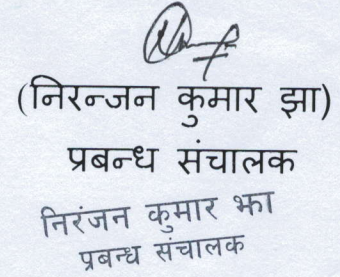 (निरन्जन कुमार झा)
प्रबन्ध संचालक
निरंजन कुमार झा
प्रबन्ध संचालक